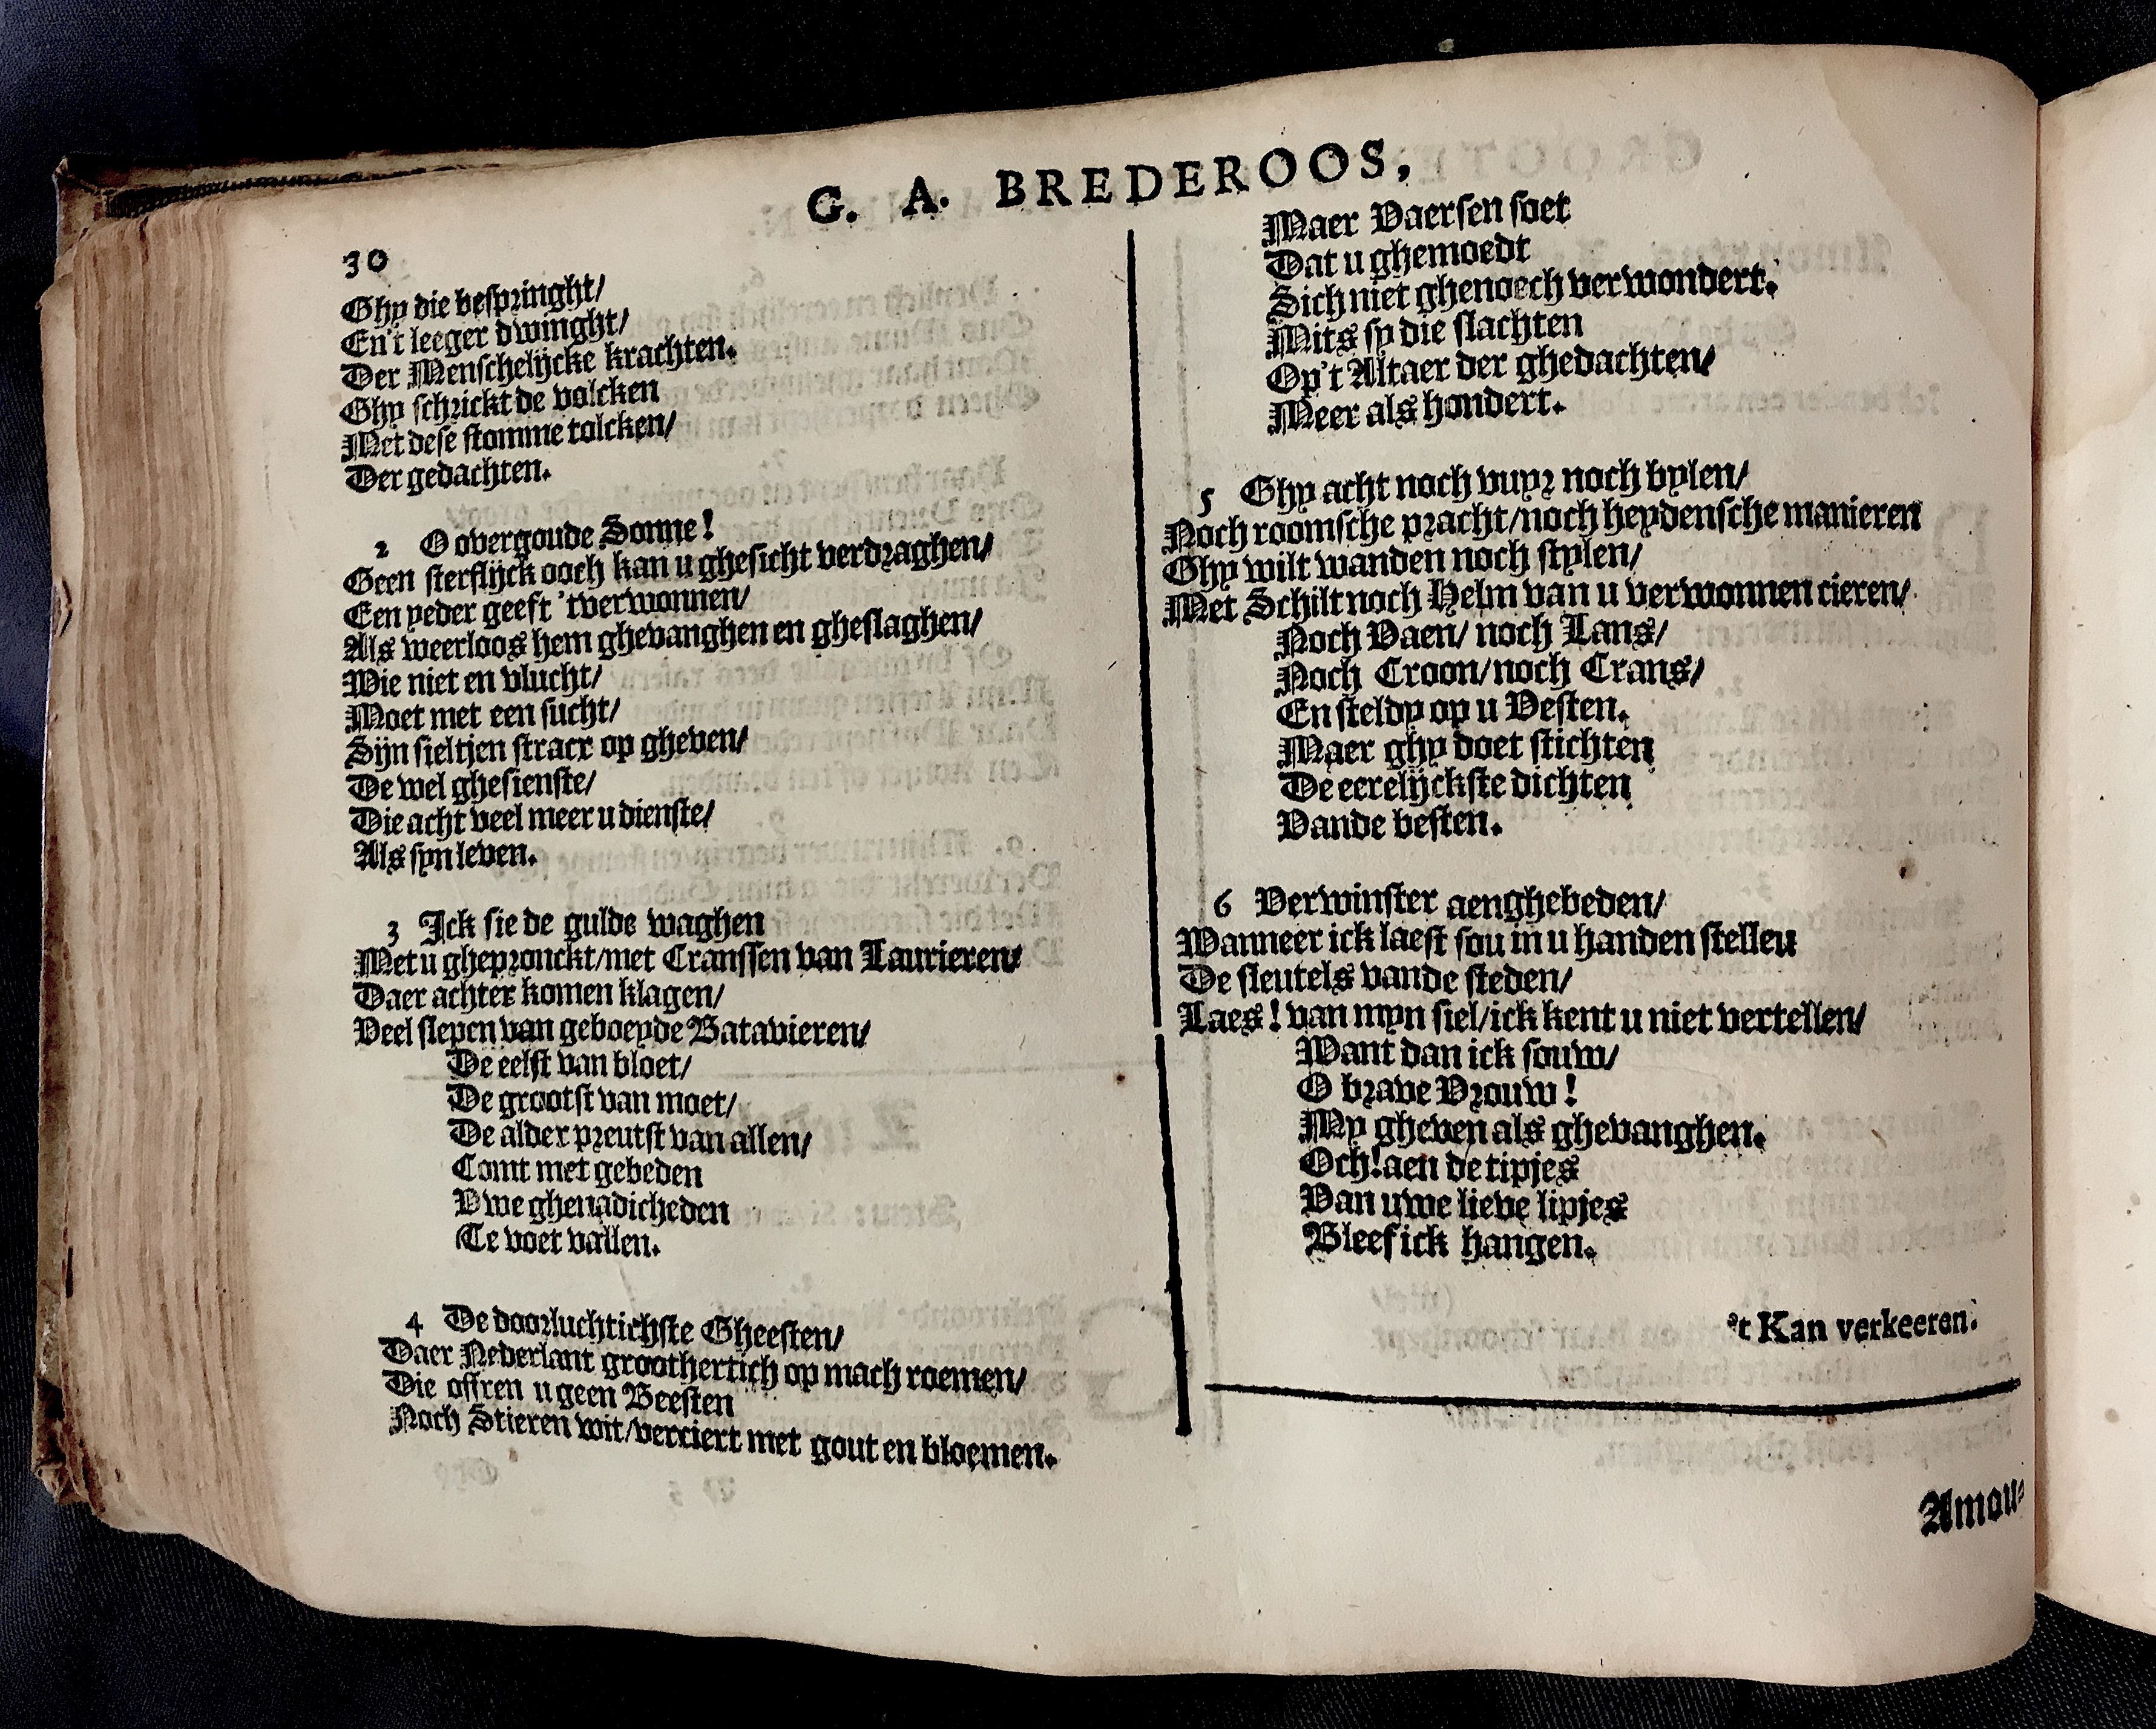 G. A. BREDEROOS,
30
Ghy die bespringht/
En't leeger dwinght/
Der Menschelijcke krachten.
Ghy schrickt de volcken
Met dese stomme tolcken/
Der gedachten.
2 O overgoude Sonne!
Geen sterflijck ooch kan u ghesicht verdraghen/
Een yeder geeft 'tverwonnen/
Als weerloos hem ghevanghen en gheslaghen/
Wie niet en vlucht/
Moet met een sucht/
Sijn sieltjen stracx op gheven/
De wel ghesienste/
Die acht veel meer u dienste/
Als syn leven.
3 Ick sie de gulde waghen
Met u ghepronckt/met Cranssen van Laurieren/
Daer achter komen klagen/
Veel slepen van geboeyde Batavieren/
De eelst van bloet/
De grootst van moet/
De alder preutst van allen/
Comt met gebeden
Vwe ghenadicheden
Te voet vallen.
4 De doorluchtichste Gheesten/
Daer Nederlant groothertich op mach roemen/
Die offren u geen Beesten
Noch Stieren wit/verciert met gout en bloemen.
Maer Vaersen soet
Dat u ghemoedt
Sich niet ghenoech verwondert.
Mits sy die slachten
Op't Altaer der ghedachten/
Meer als hondert.
5 Ghy acht noch vuyr noch bylen/
Noch roomsche pracht/noch heydensche manieren
Ghy wilt wanden noch stylen/
Met Schilt noch Helm van u verwonnen cieren/
Noch Vaen/ noch Lans/
Noch Croon/noch Crans/
En steldy op u Vesten.
Maer ghy doet stichten
De eerelijckste dichten
Vande besten.
6 Verwinster aenghebeden/
Wanneer ick laest sou in u handen stelleu
De sleutels vande steden/
Laes! van myn siel/ick kent u niet vertellen/
Want dan ick souw/
O brave Vrouw!
My gheven als ghevanghen.
Och!aen de tipjes
Van uwe lieve lipjes
Bleef ick hangen.
't Kan verkeeren.
Amou-